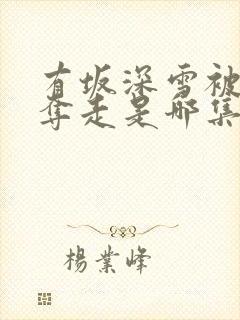 有坂深雪被
夺走是哪集
楊業峰